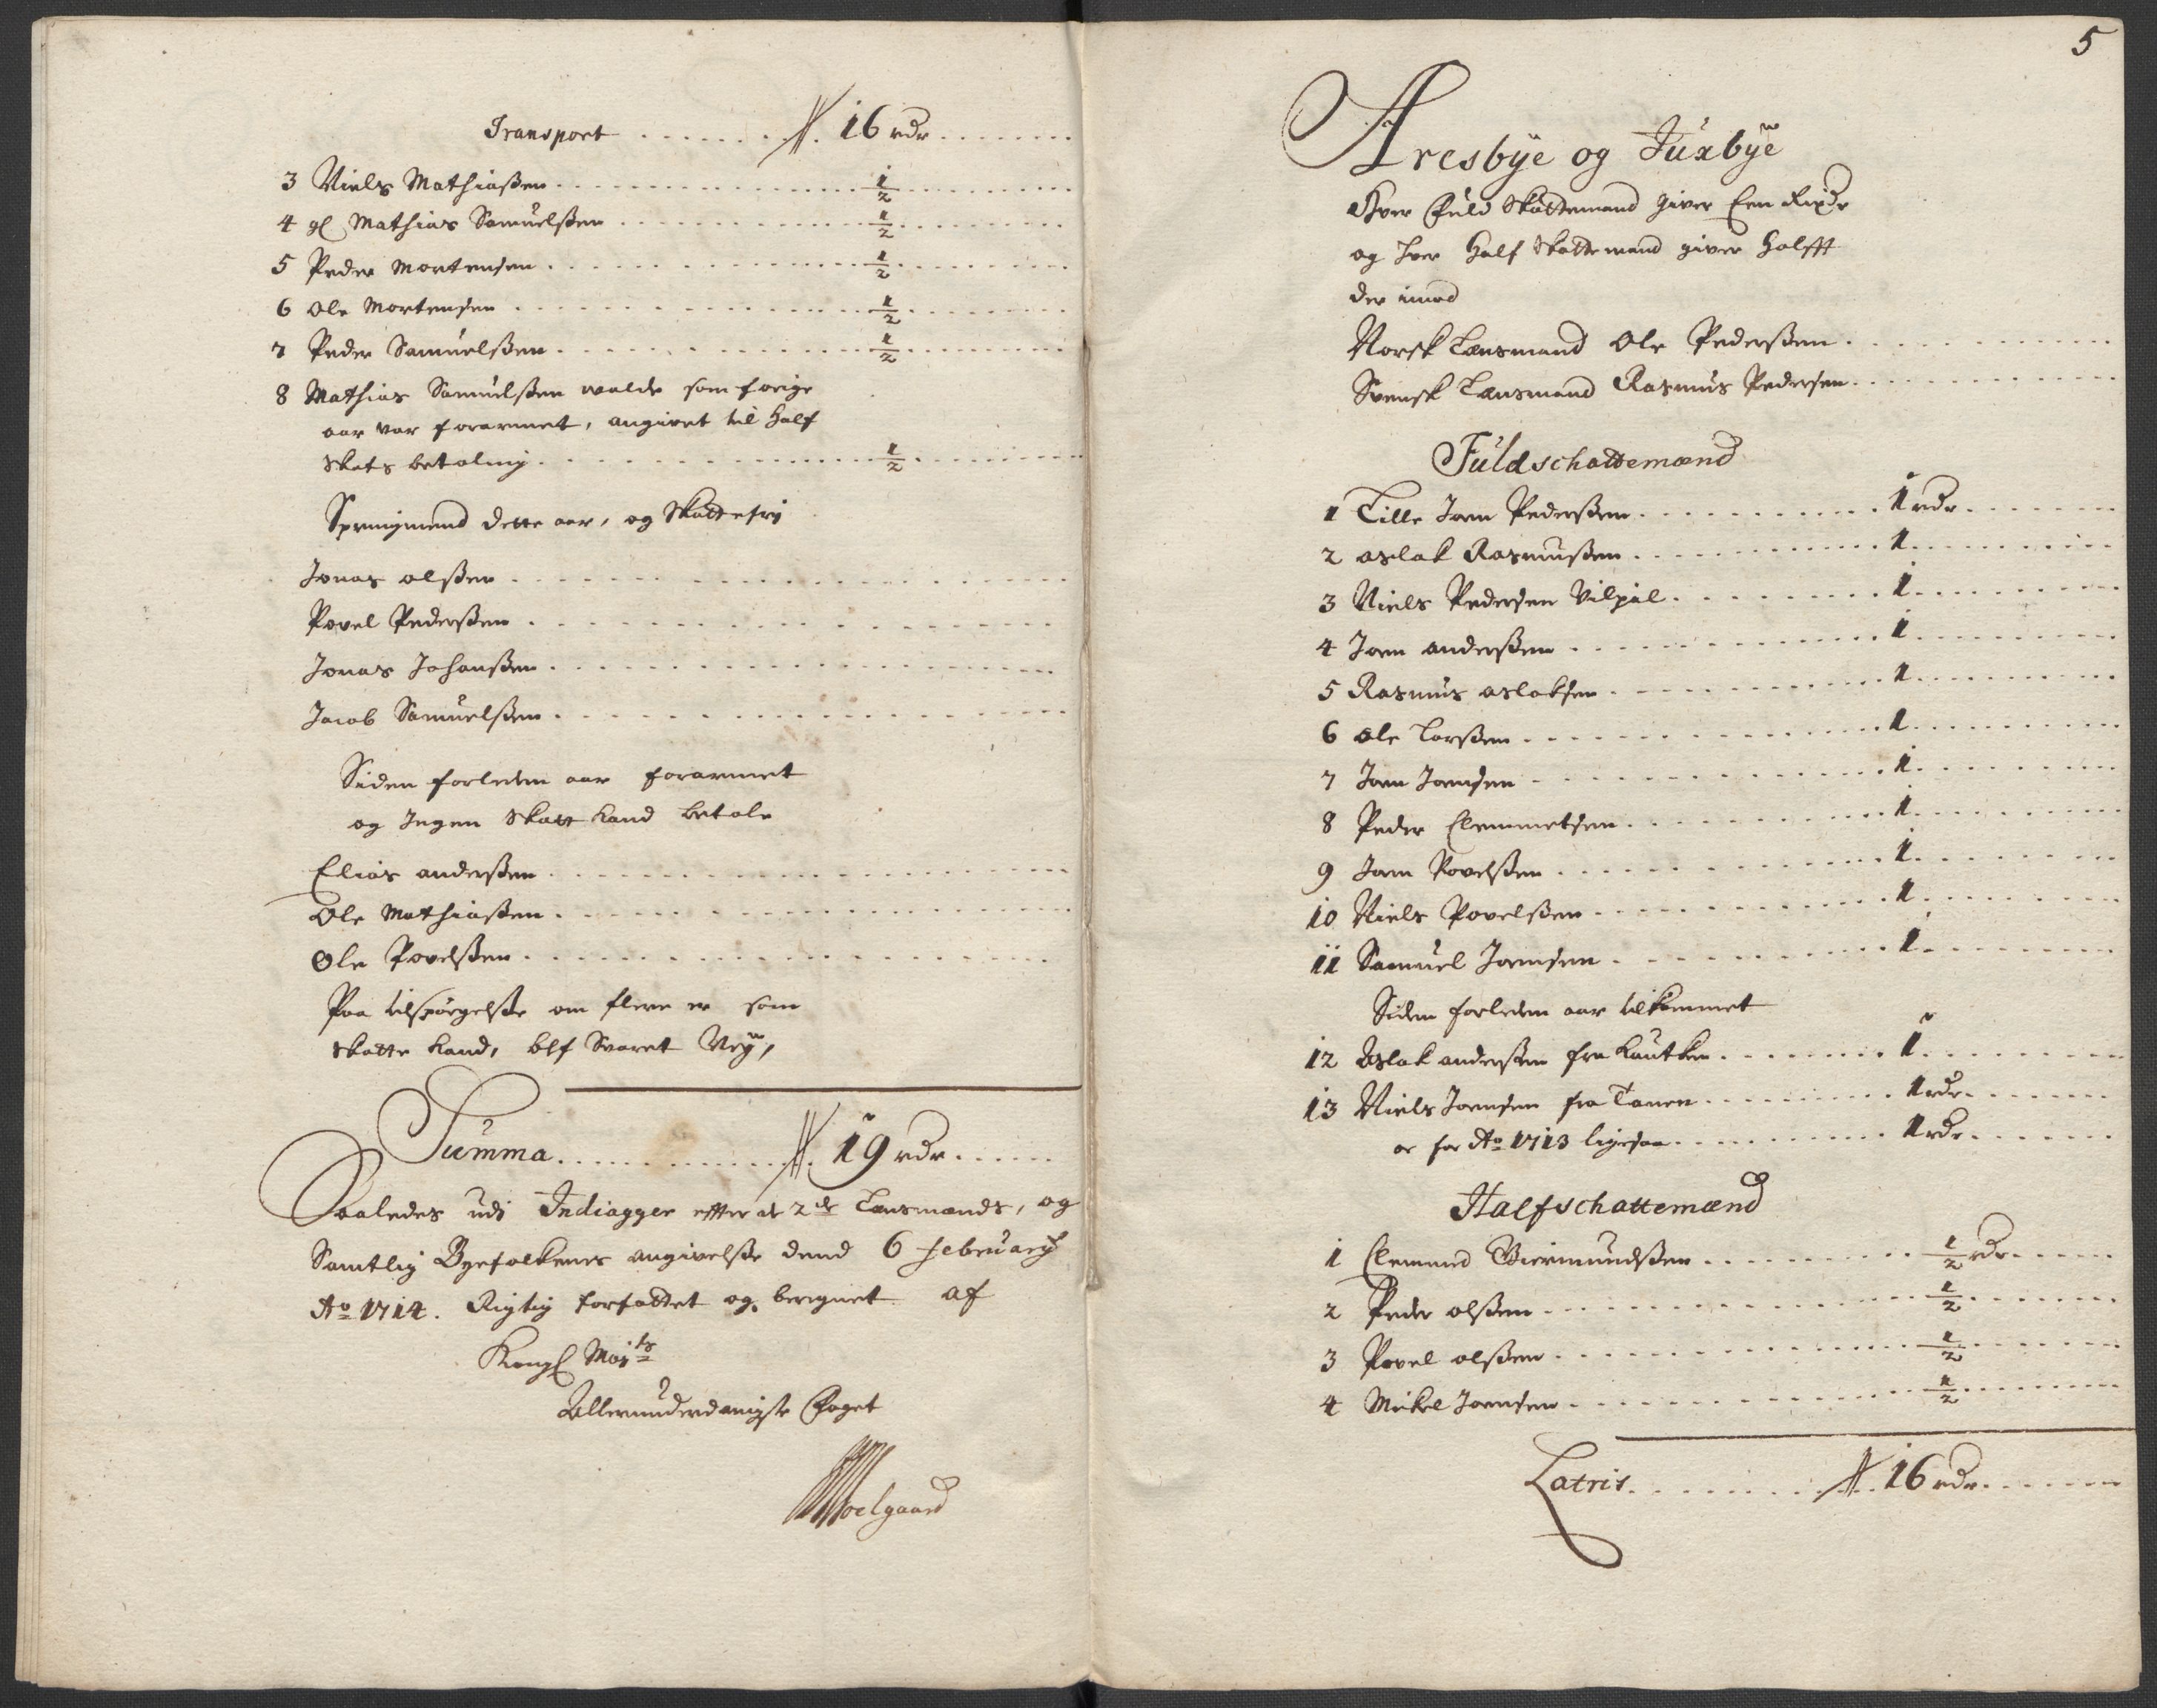 Transport ....... 16 rdr .......
3 Niels Mathiaßen ....... 1/2 .......
4 gl Mathias Samuelßen ....... 1/2 .......
5 Peder Mortensen ....... 1/2 .......
6 Ole Mortensen ....... 1/2 .......
7 Peder Samuelßen ....... 1/2 .......
8 Mathias Samuelßen som forige
aar var forarmet, angivet til Half
Skats betaling ....... 1/2 .......
dette aar, og Skattefrj
Jonas olßen .......
Povel Pederßen .......
Jonas Johanßen .......
Jacob Samuelßen .......
Siden forleden aar forarmet
og Ingen Skatt kand betale
Elias anderßen .......
Ole Mathiaßen .......
Ole Povelßen .......
Paa tilspörgelße om flere er som
Skatte kand, blf Svaret Neÿ,
Summa ....... 19 rdr .......
Saaledes udi Indiagger efter de 2de Lænsmænds, og
Samtlig Byefolkenes angivelße dend 6 februarij
Ao 1714. Rigtig forfattet og beregnet af
Kongl Maÿts
Allerunderdanigste Foget
5
Aresbÿe og Juxbÿe
Hver Fuld Skattemand giver Een Rixdr
og hver Half Skattemand giver Halfft
der imod
Norsk Lænsmand Ole Pederßen .......
Svensk Lænsmand Rasmus Pedersen .......
Fuldschattemænd
1 Lille Joen Pederßen ....... 1 rdr .......
2 aslak Rasmußen ....... 1 .......
3 Niels Pedersen Vilpal ....... 1 .......
4 Joen anderßen ....... 1 .......
5 Rasmus aslaksen ....... 1 .......
6 ole Larßen ....... 1 .......
7 Joen Joensen ....... 1 .......
8 Peder Clemmetsen ....... 1 .......
9 Joen Povelßen ....... 1 .......
10 Niels Povelßen ....... 1 .......
11 Samuel Joensen ....... 1 .......
Siden forleden aar tilkommet
12 Aslak anderßen fra Kautken ....... 1 .......
13 Niels Joensen fra Tanen ....... 1 rdr .......
og for Ao 1713 ligesaa ....... 1 rdr .......
Halfschattemænd
1 Clemmed Giermundßen ....... 1/2 rdr .......
2 Peder olßen ....... 1/2 .......
3 Povel olßen ....... 1/2 .......
4 Mikel Joensen ....... 1/2 .......
Latris ....... 16 rdr .......